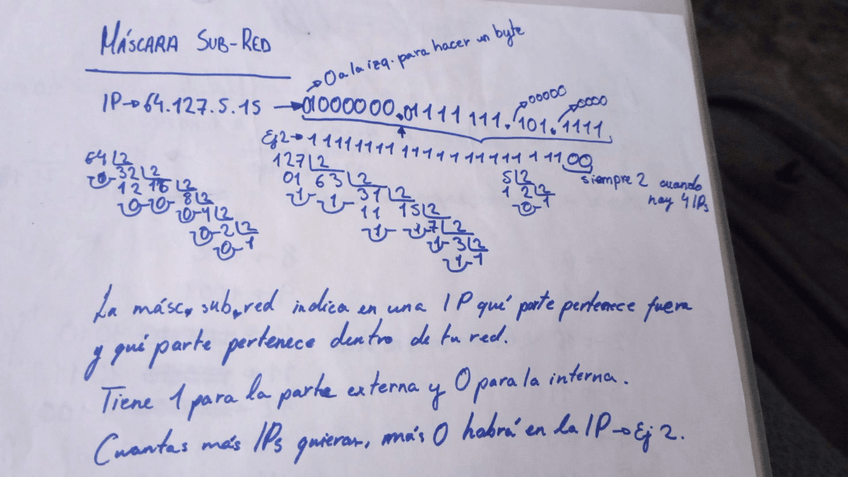 MÁSCARA SUB-RED
0 a la izq. para hacer un byte
IP→64.127.5.15 → 01000000.01111111.101.1111
00000
0000
Ej2→ 1111111111111111111111100
siempre 2 cuando
hay 4 IPs
64 |2
0 32 |2
12 16 |2
0 0 8 |2
0 4 |2
0 2 |2
0 1
127 |2
01 63 |2
1 1 31 |2
11 15 |2
1 1 7 |2
1 3 |2
1 1
5 |2
1 2 |2
0 1
La másc. sub.red indica en una IP qué parte pertenece fuera
y qué parte pertenece dentro de tu red.
Tiene 1 para la parte externa y 0 para la interna.
Cuantas más IPs quieras, más 0 habrá en la IP→Ej 2.